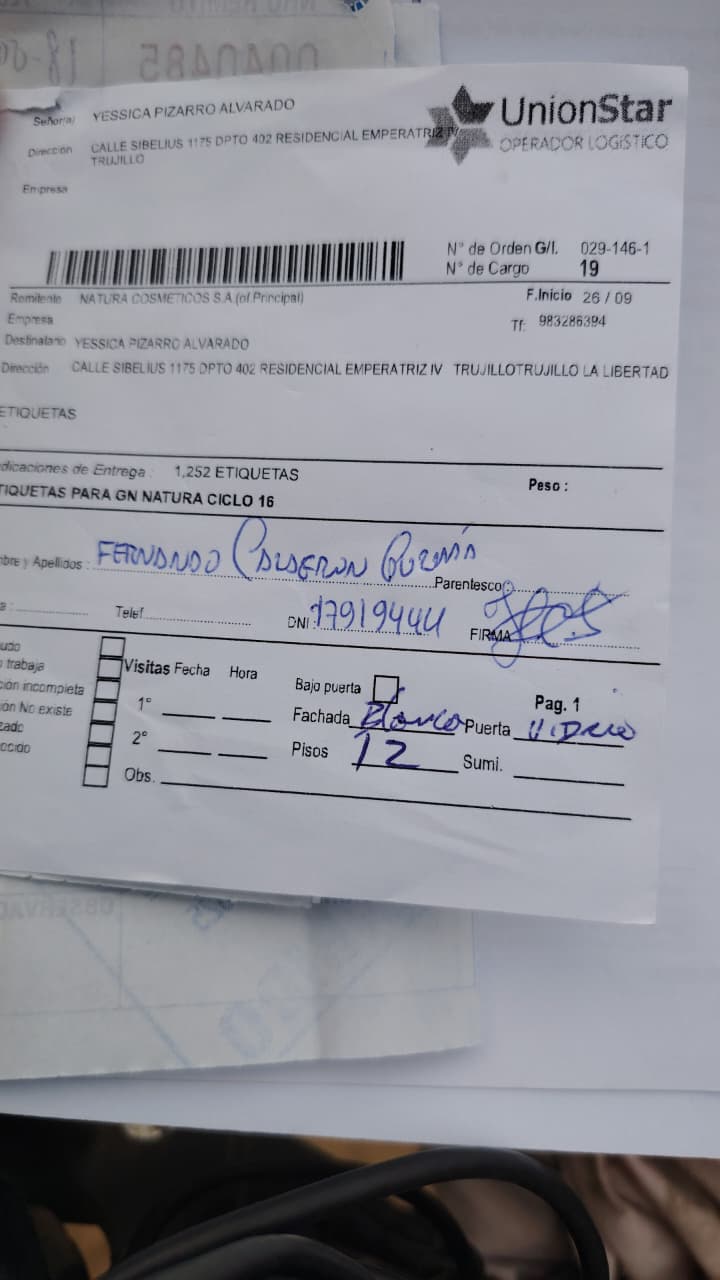 0040485
Señor(a) YESSICA PIZARRO ALVARADO
UnionStar
OPERADOR LOGISTICO
Dirección CALLE SIBELIUS 1175 DPTO 402 RESIDENCIAL EMPERATRIZ IV
TRUJILLO
Empresa
N° de Orden G/I. 029-146-1
N° de Cargo 19
Remitente NATURA COSMETICOS S.A.(of.Principal)
F.Inicio 26 / 09
Empresa
Tf: 983286394
Destinatario YESSICA PIZARRO ALVARADO
Dirección CALLE SIBELIUS 1175 DPTO 402 RESIDENCIAL EMPERATRIZ IV TRUJILLOTRUJILLO LA LIBERTAD
ETIQUETAS
dicaciones de Entrega : 1,252 ETIQUETAS
Peso :
TIQUETAS PARA GN NATURA CICLO 16
bre y Apellidos : FERNANDO CALDERON GUZMÁN
Parentesco
a : Telef DNI 17919444 FIRMA
udo
trabaja
ión incompleta
ón No existe
zado
ocido
Visitas Fecha Hora
Bajo puerta
Pag. 1
1°
Fachada Blanco Puerta VIDRIO
2°
Pisos 12 Sumi.
Obs.